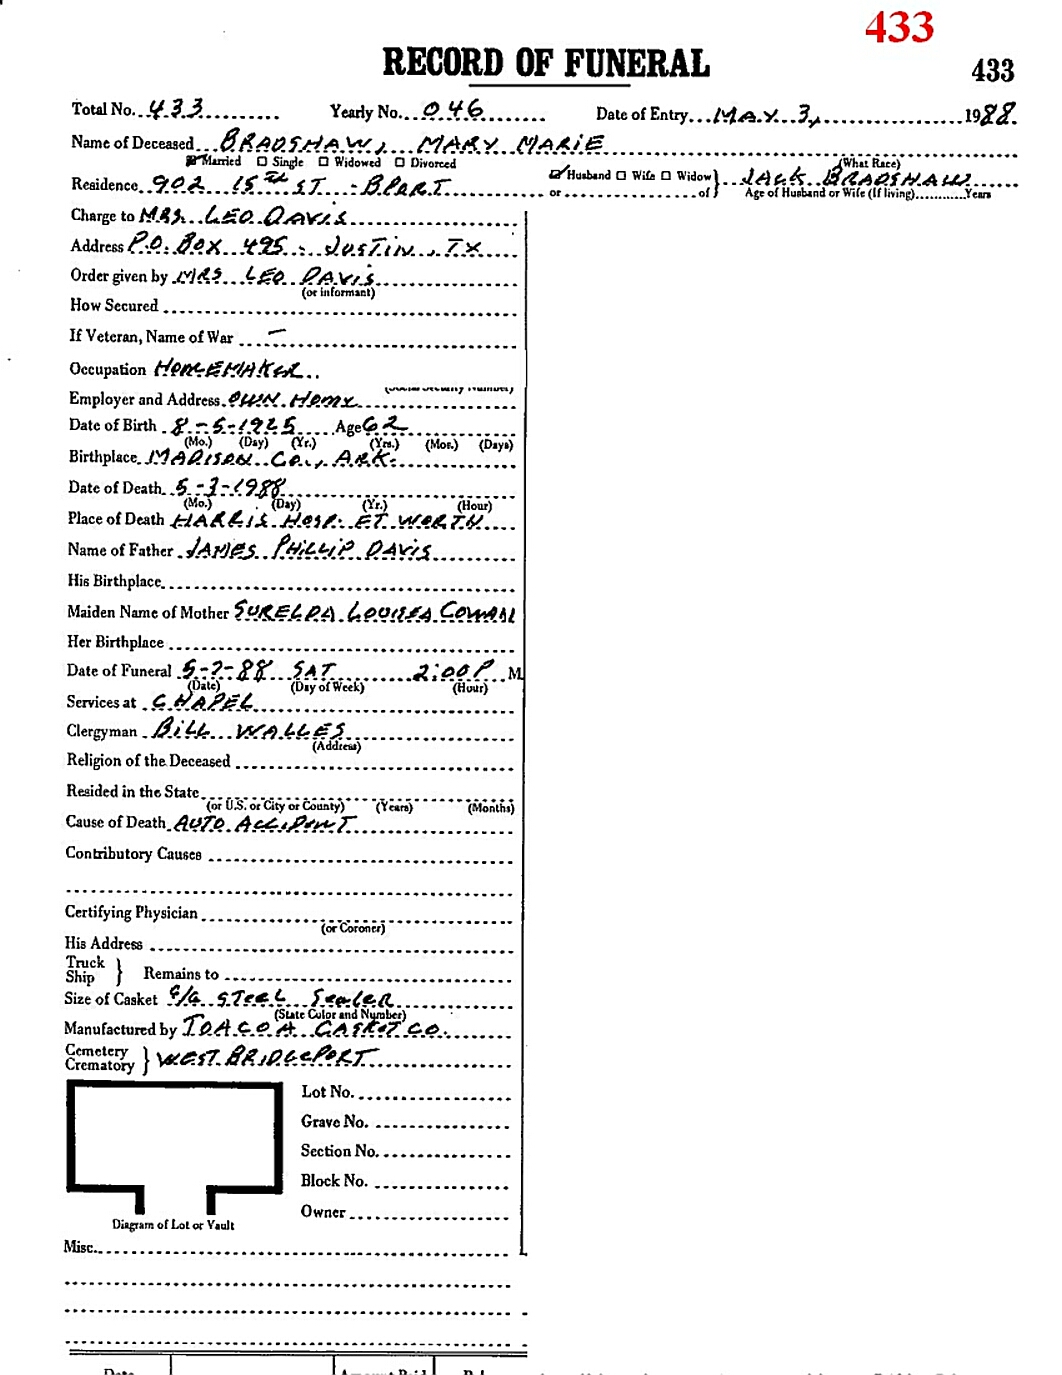 433
RECORD OF FUNERAL
433
Total No. 433 Yearly No. 046 Date of Entry MAY 3, 1988
Name of Deceased BRADSHAW, MARY MARIE
Married Single Widowed Divorced (What Race)
Residence 902 15TH ST - BPORT Husband Wife Widow JACK BRADSHAW
or of Age of Husband or Wife (If living) Years
Charge to MRS. LEO DAVIS
Address P.O. BOX 495 - JUSTIN, TX
Order given by MRS LEO DAVIS
(or informant)
How Secured
If Veteran, Name of War –
Occupation HOMEMAKER
(Social Security Number)
Employer and Address OWN HOME
Date of Birth 8-5-1925 Age 62
(Mo.) (Day) (Yr.) (Yrs.) (Mos.) (Days)
Birthplace MADISON CO., ARK.
Date of Death 5-3-1988
(Mo.) (Day) (Yr.) (Hour)
Place of Death HARRIS HOSP. FT WORTH
Name of Father JAMES PHILLIP DAVIS
His Birthplace
Maiden Name of Mother SURELDA LOUISEA COWAN
Her Birthplace
Date of Funeral 5-7-88 SAT 2:00 P M
(Date) (Day of Week) (Hour)
Services at CHAPEL
Clergyman BILL WALLES
(Address)
Religion of the Deceased
Resided in the State
(or U.S. or City or County) (Years) (Months)
Cause of Death AUTO ACCIDENT
Contributory Causes
Certifying Physician
(or Coroner)
His Address
Truck
Ship } Remains to
Size of Casket STEEL SEALER
(State Color and Number)
Manufactured by TOACOA CASKET CO.
Cemetery
Crematory } WEST BRIDGEPORT
Lot No.
Grave No.
Section No.
Block No.
Owner
Diagram of Lot or Vault
Misc.
Date Amount Paid